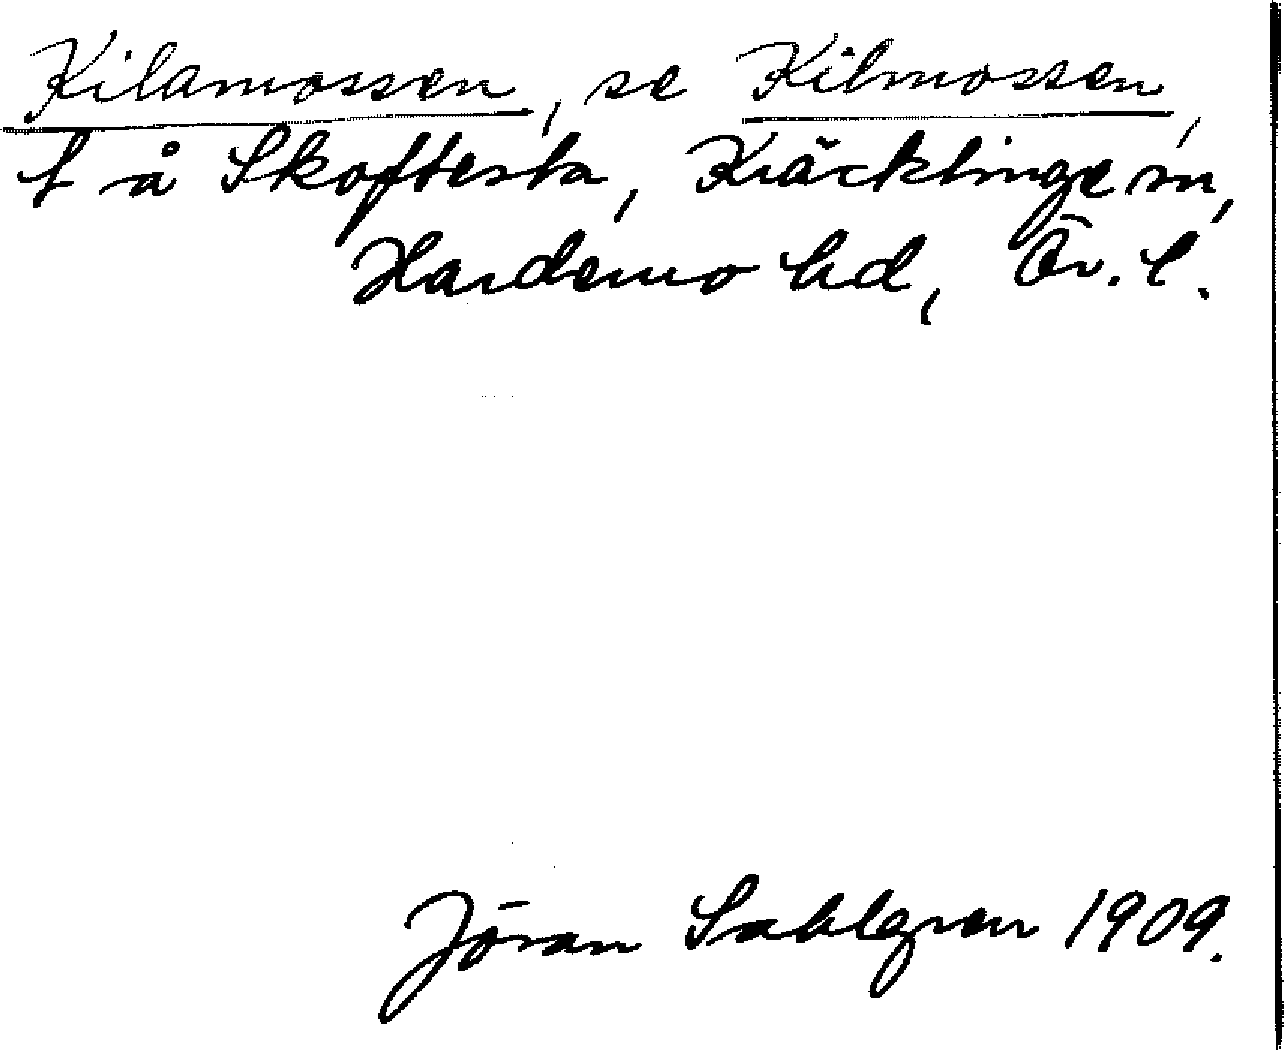 Kilamossen, se Kilmossen,
t å Skoftesta, Kräcklinge sn,
Hardemo hd, Ör. l.
Jöran Sahlgren 1909.